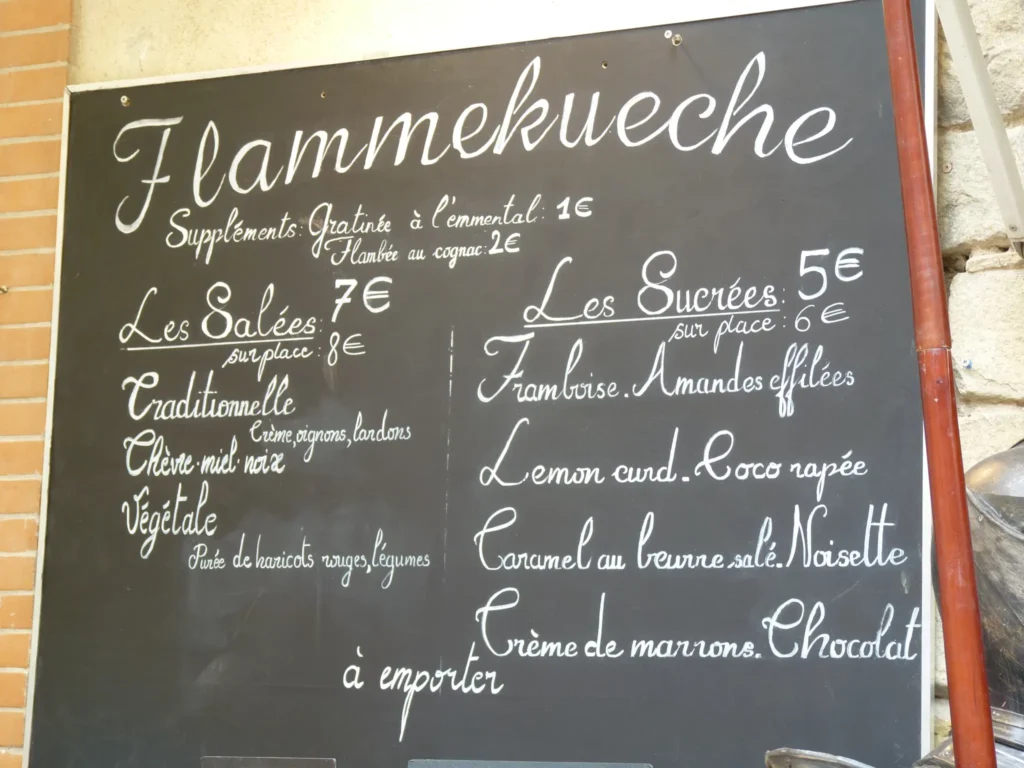 Flammekueche
Suppléments: Gratinée à l'emmental: 1€
Flambée au cognac: 2€
Les Salées: 7€
sur place: 8€
Traditionnelle
Crème, oignons, lardons
Chèvre-miel-noix
Végétale
Purée de haricots rouges, légumes
Les Sucrées: 5€
sur place: 6€
Framboise. Amandes effilées
Lemon curd. Coco rapée
Caramel au beurre salé. Noisette
Crème de marrons. Chocolat
à emporter